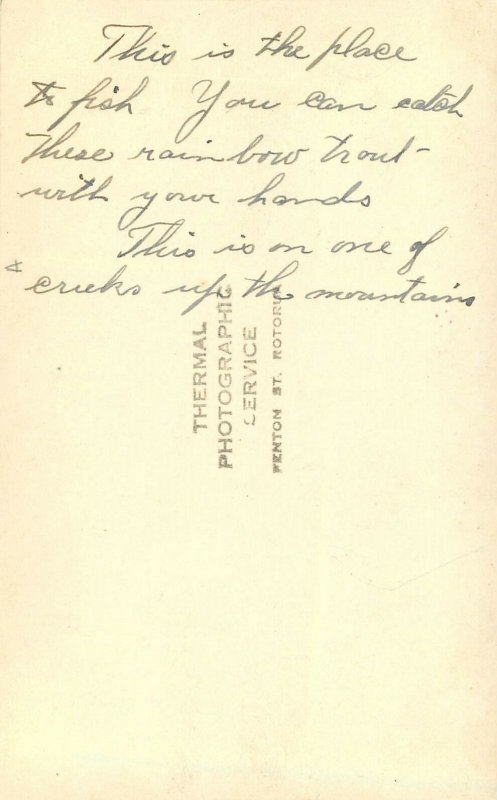 This is the place
to fish You can catch
these rainbow trout
with your hands
This is on one of
creeks up the mountains
THERMAL
PHOTOGRAPHIC
SERVICE
FENTON ST. ROTORUA